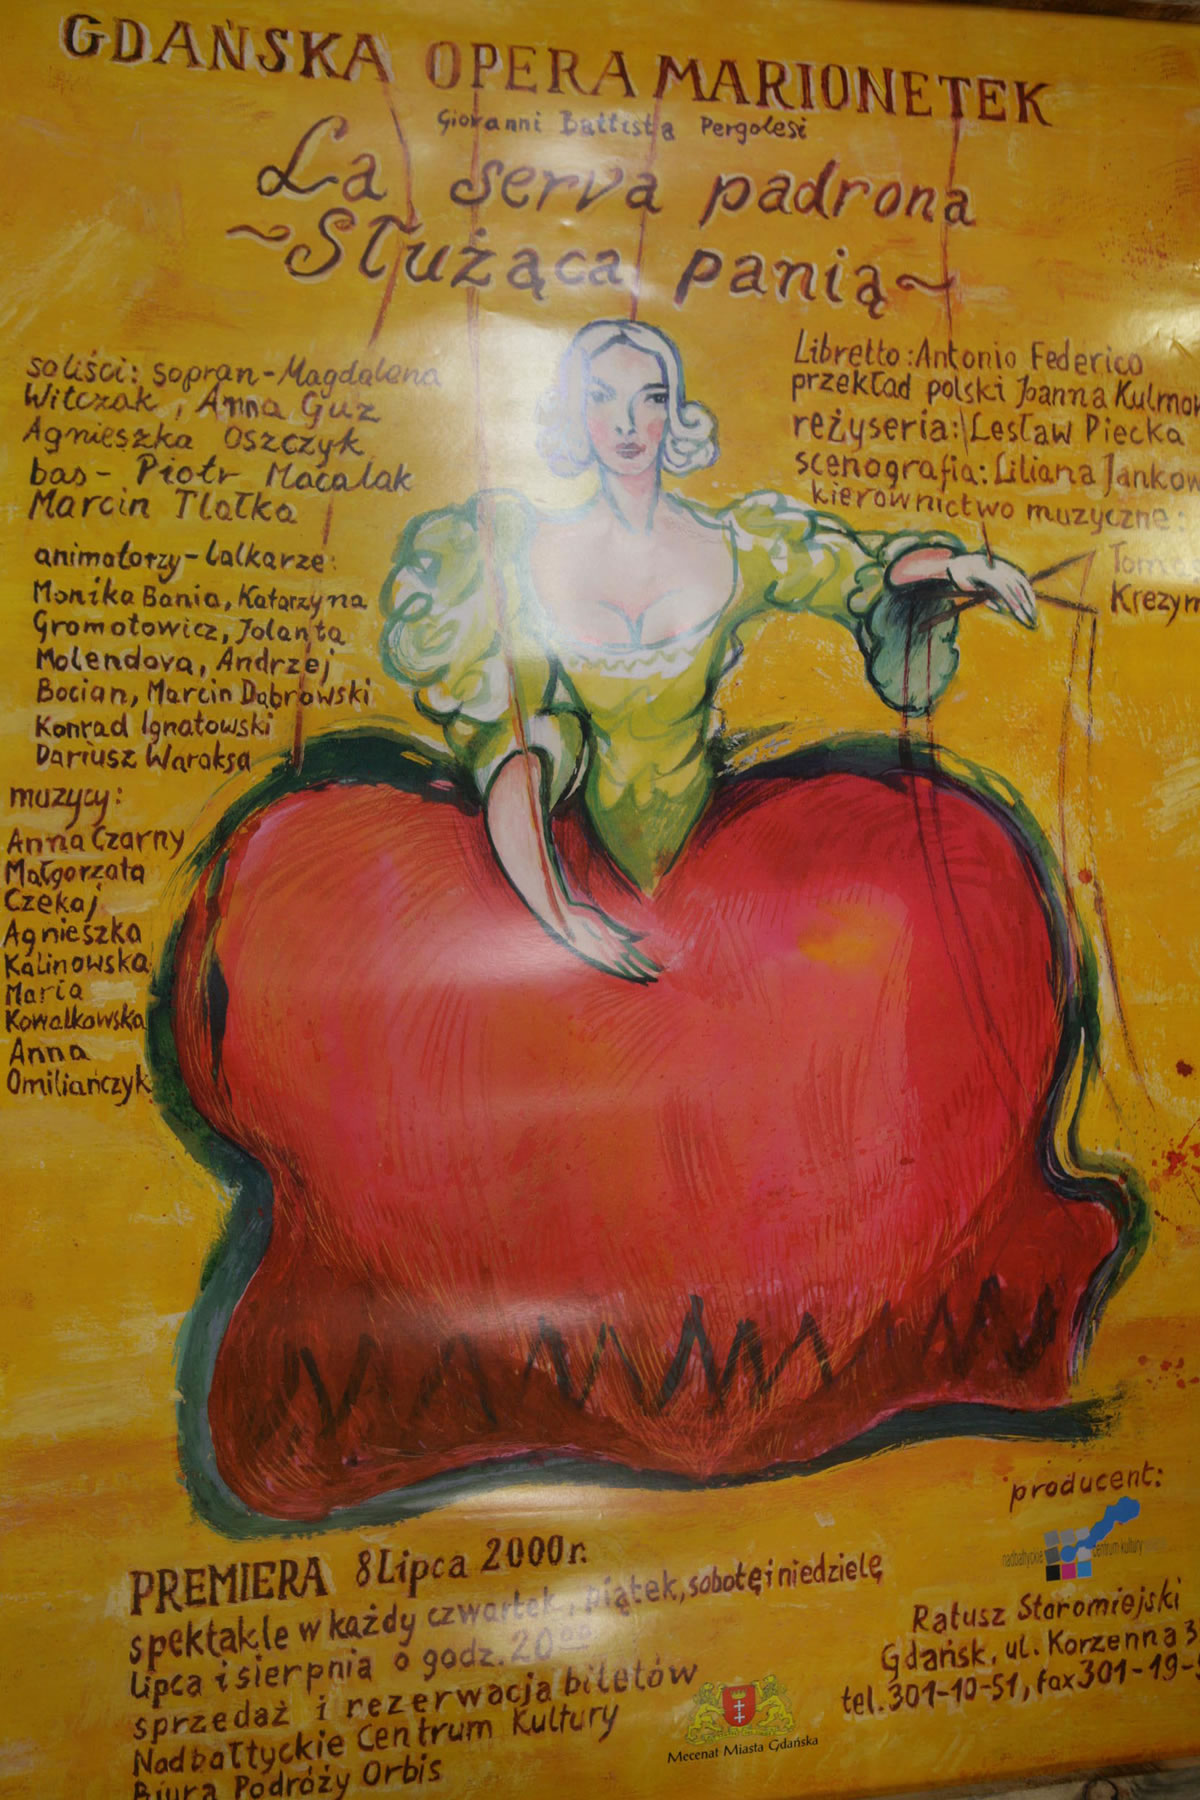 GDAŃSKA OPERA MARIONETEK
Giovanni Battista Pergolesi
La serva padrona
~Służąca panią~
soliści: sopran - Magdalena
Witczak, Anna Guz
Agnieszka Oszczyk
bas - Piotr Macalak
Marcin Tlałka
animatorzy - lalkarze:
Monika Bania, Katarzyna
Gromołowicz, Jolanta
Molendova, Andrzej
Bocian, Marcin Dąbrowski
Konrad Ignatowski
Dariusz Waraksa
muzycy:
Anna Czarny
Małgorzata
Czekaj
Agnieszka
Kalinowska
Maria
Kowalkowska
Anna
Omiliańczyk
Libretto: Antonio Federico
przekład polski Joanna
reżyseria: Lesław Piecka
scenografia: Liliana
kierownictwo muzyczne:
producent:
nadbałtyckie centrum kultury
PREMIERA 8 Lipca 2000 r.
spektakle w każdy czwartek, piątek, sobotę i niedzielę
lipca i sierpnia o godz. 20⁰⁰
sprzedaż i rezerwacja biletów
Nadbałtyckie Centrum Kultury
Biura Podróży Orbis
Mecenat Miasta Gdańska
Ratusz Staromiejski
Gdańsk, ul. Korzenna
tel. 301-10-51, fax 301-19-